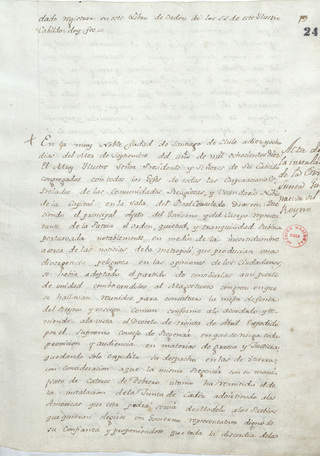 dado registrar en este Libro de orden de los SS. de este Ilustre
Cabildo, doy fee.
24
En la muy Noble Ciudad de Santiago de Chile a diez y ocho
dias del Mes de Septiembre del año de mil ochocientos diez
El Muy Ilustre Señor Presidente y Señores de su Cabildo
congregados con todos los Gefes de todas las Corporaciones,
Prelados de las Comunidades Religiosas, y Vecindario Noble
de la Capital en la sala del Real Consulado Dixeron: Que
siendo el principal objeto del Gobierno y del Cuerpo represen
tante de la Patria el orden, quietud, y tranquilidad Publica
perturvada notablemente en medio de la incertidumbre
acerca de las noticias de la metropoli, que producian una
divergencia peligrosa en las opiniones de los Ciudadanos
se habia adoptado el partido de conciliarlas a un punto
de unidad, combocandolos al Magestuoso congreso en que
se hallavan reunidos para consultar la mejor defensa
del Reyno y sosiego comun conforme a lo acordado, y te-
niendo a la vista el Decreto de treinta de Abril expedido
por el Supremo Consejo de Regencia en que se niega toda
provision y audiencia en materias de gracia y Justicia
quedando solo expedito su despacho en las de Guerra;
con consideracion a que la misma Regencia con su mani-
fiesto de Catorce de Febrero ultimo ha remitido el de
la instalacion de la Junta de Cadiz advirtiendo a las
Americas que esta podra servir de Modelo a los Pueblos
que quieran elegirse un Govierno representativo digno de
su Confianza y proponiendose que toda la discordia de la
Acta de
la instalacion
de la
Junta
del
Reyno